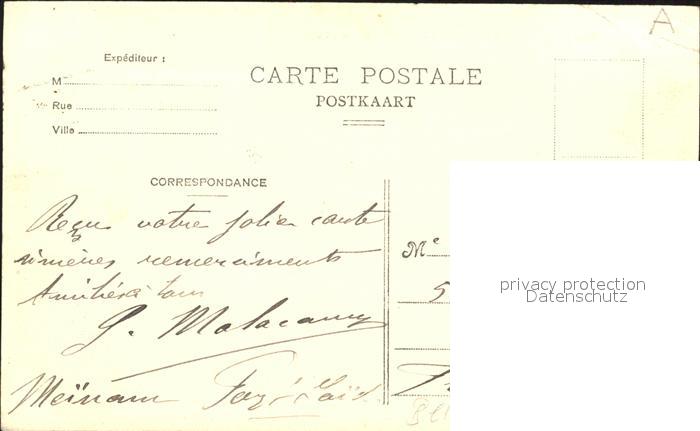 A
Expéditeur :
M
Rue
Ville
CARTE POSTALE
POSTKAART
CORRESPONDANCE
Reçu votre jolie carte
sincères remerciements
Amitiés à tous
G. Malacamy
Meïnam
Mᵉ
5
privacy protection
Datenschutz